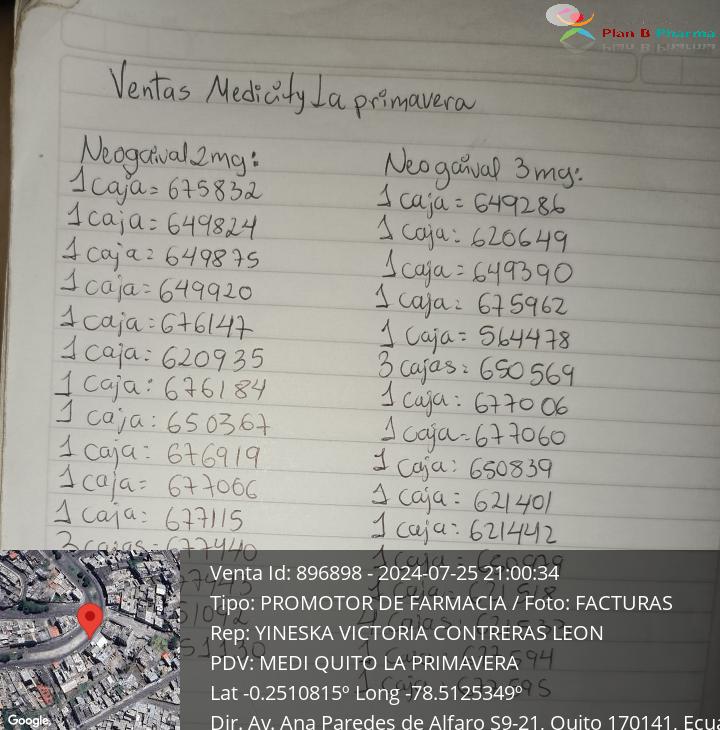 Plan B Pharma
Ventas Medicity La primavera
Neogaival 2mg:
1 caja = 675832
1 caja = 649824
1 caja = 649875
1 caja = 649920
1 caja = 676147
1 caja: 620935
1 caja: 676184
1 caja: 650367
1 caja: 676919
1 caja = 677066
1 caja: 677115
3 cajas = 677440
Neogaival 3mg:
1 caja = 649286
1 caja: 620649
1 caja = 649390
1 caja: 675962
1 caja = 564478
3 cajas: 650569
1 caja: 677006
1 caja = 677060
1 caja: 650839
1 caja = 621401
1 caja: 621442
Venta Id: 896898 - 2024-07-25 21:00:34
Tipo: PROMOTOR DE FARMACIA / Foto: FACTURAS
Rep: YINESKA VICTORIA CONTRERAS LEON
PDV: MEDI QUITO LA PRIMAVERA
Lat -0.2510815º Long -78.5125349º
Dir. Av. Ana Paredes de Alfaro S9-21, Quito 170141, Ecua
Google